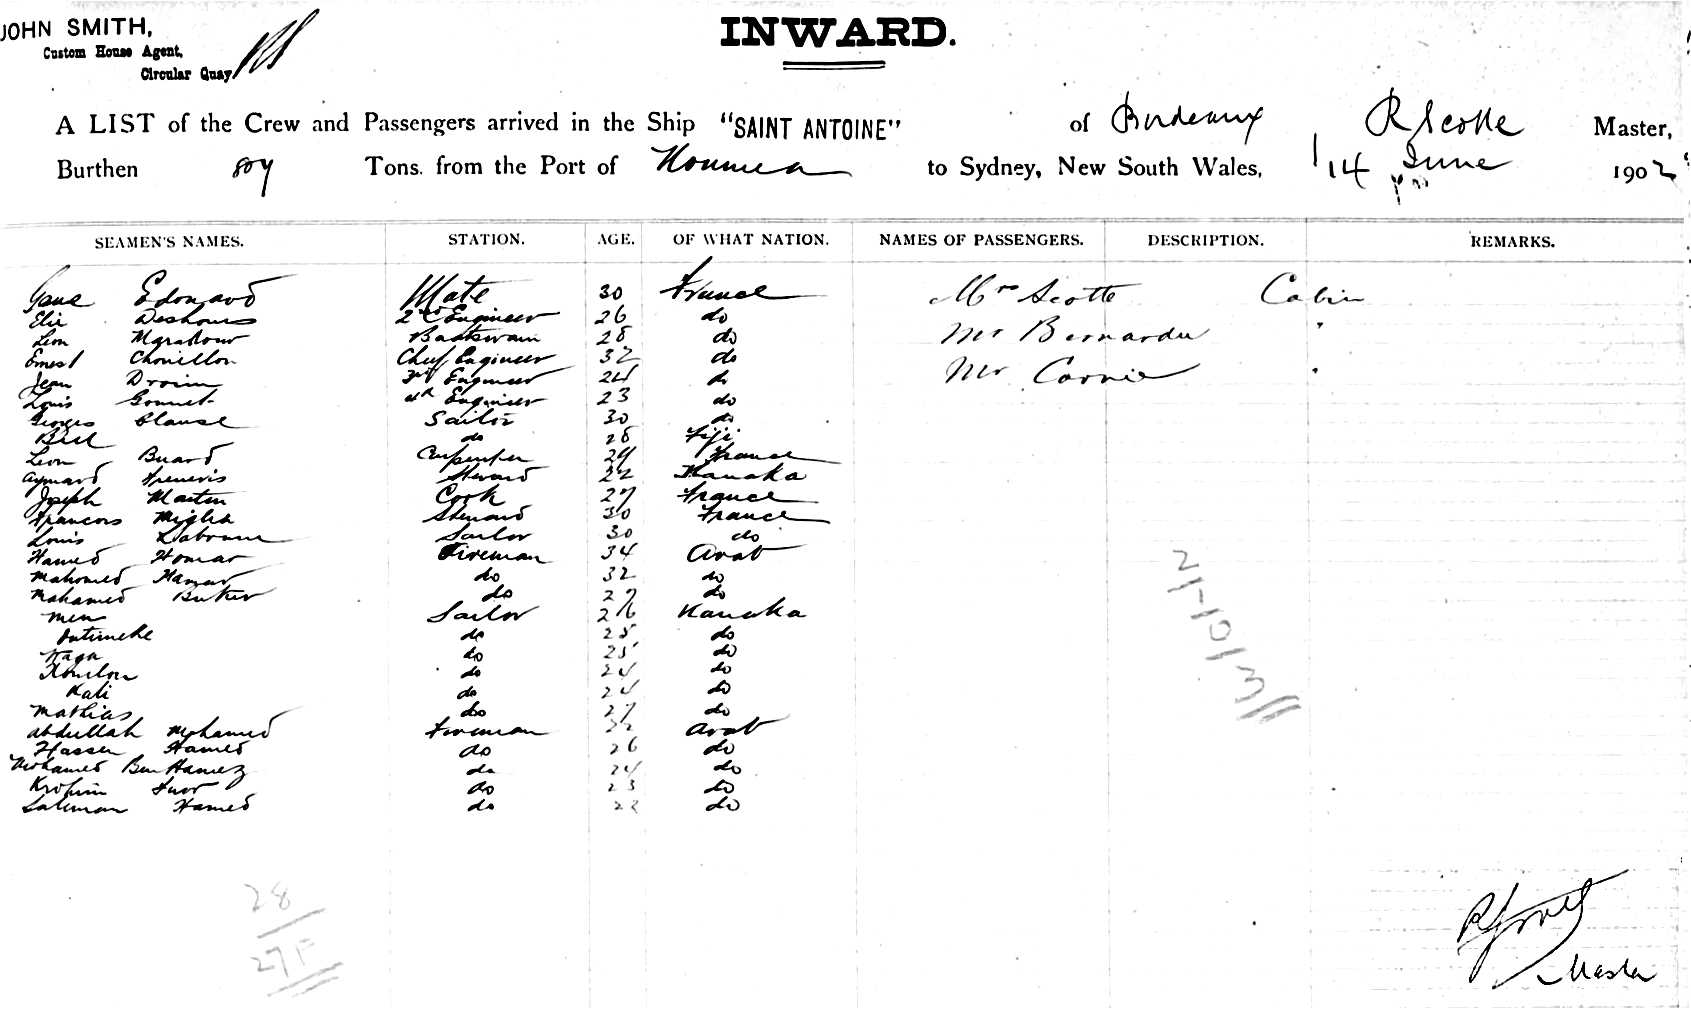 JOHN SMITH,
Custom House Agent,
Circular Quay
INWARD.
A LIST of the Crew and Passengers arrived in the Ship "SAINT ANTOINE" of Bordeaux R Scotte Master,
Burthen 809 Tons. from the Port of Noumea to Sydney, New South Wales, 14 June 1902
SEAMEN'S NAMES. STATION. AGE. OF WHAT NATION. NAMES OF PASSENGERS. DESCRIPTION. REMARKS.
Edouard Mate 30 France Mrs Scotte Cabin
Elie 2nd Engineer 26 do
Leon Boatswain 28 do Mr Bernardu "
Ernest Chouillon Chief Engineer 32 do
Jean 3rd Engineer 24 do Mr Cornie "
Louis Gonnet 4th Engineer 23 do
Georges Clause Sailor 30 do
Bill do 28 Fiji
Leon Buard Carpenter 29 France
Aymard Steward 22 Kanaka
Joseph Martin Cook 27 France
Francois Miglia Steward 30 France
Louis Sailor 30 do
Hamed Homar Fireman 34 Arab
Mahomed Hamar do 32 do
Mahamed do 27 do
Men Sailor 26 Kanaka
do 25 do
Kaga do 25 do
do 24 do
Kali do 24 do
Mathias do 27 do
Abdullah Mohamed Fireman 22 Arab
Hassen Hamed do 26 do
Mohamed Ben Hamez do 24 do
do 23 do
Saliman Hamed do 22 do
28
27 F
Master